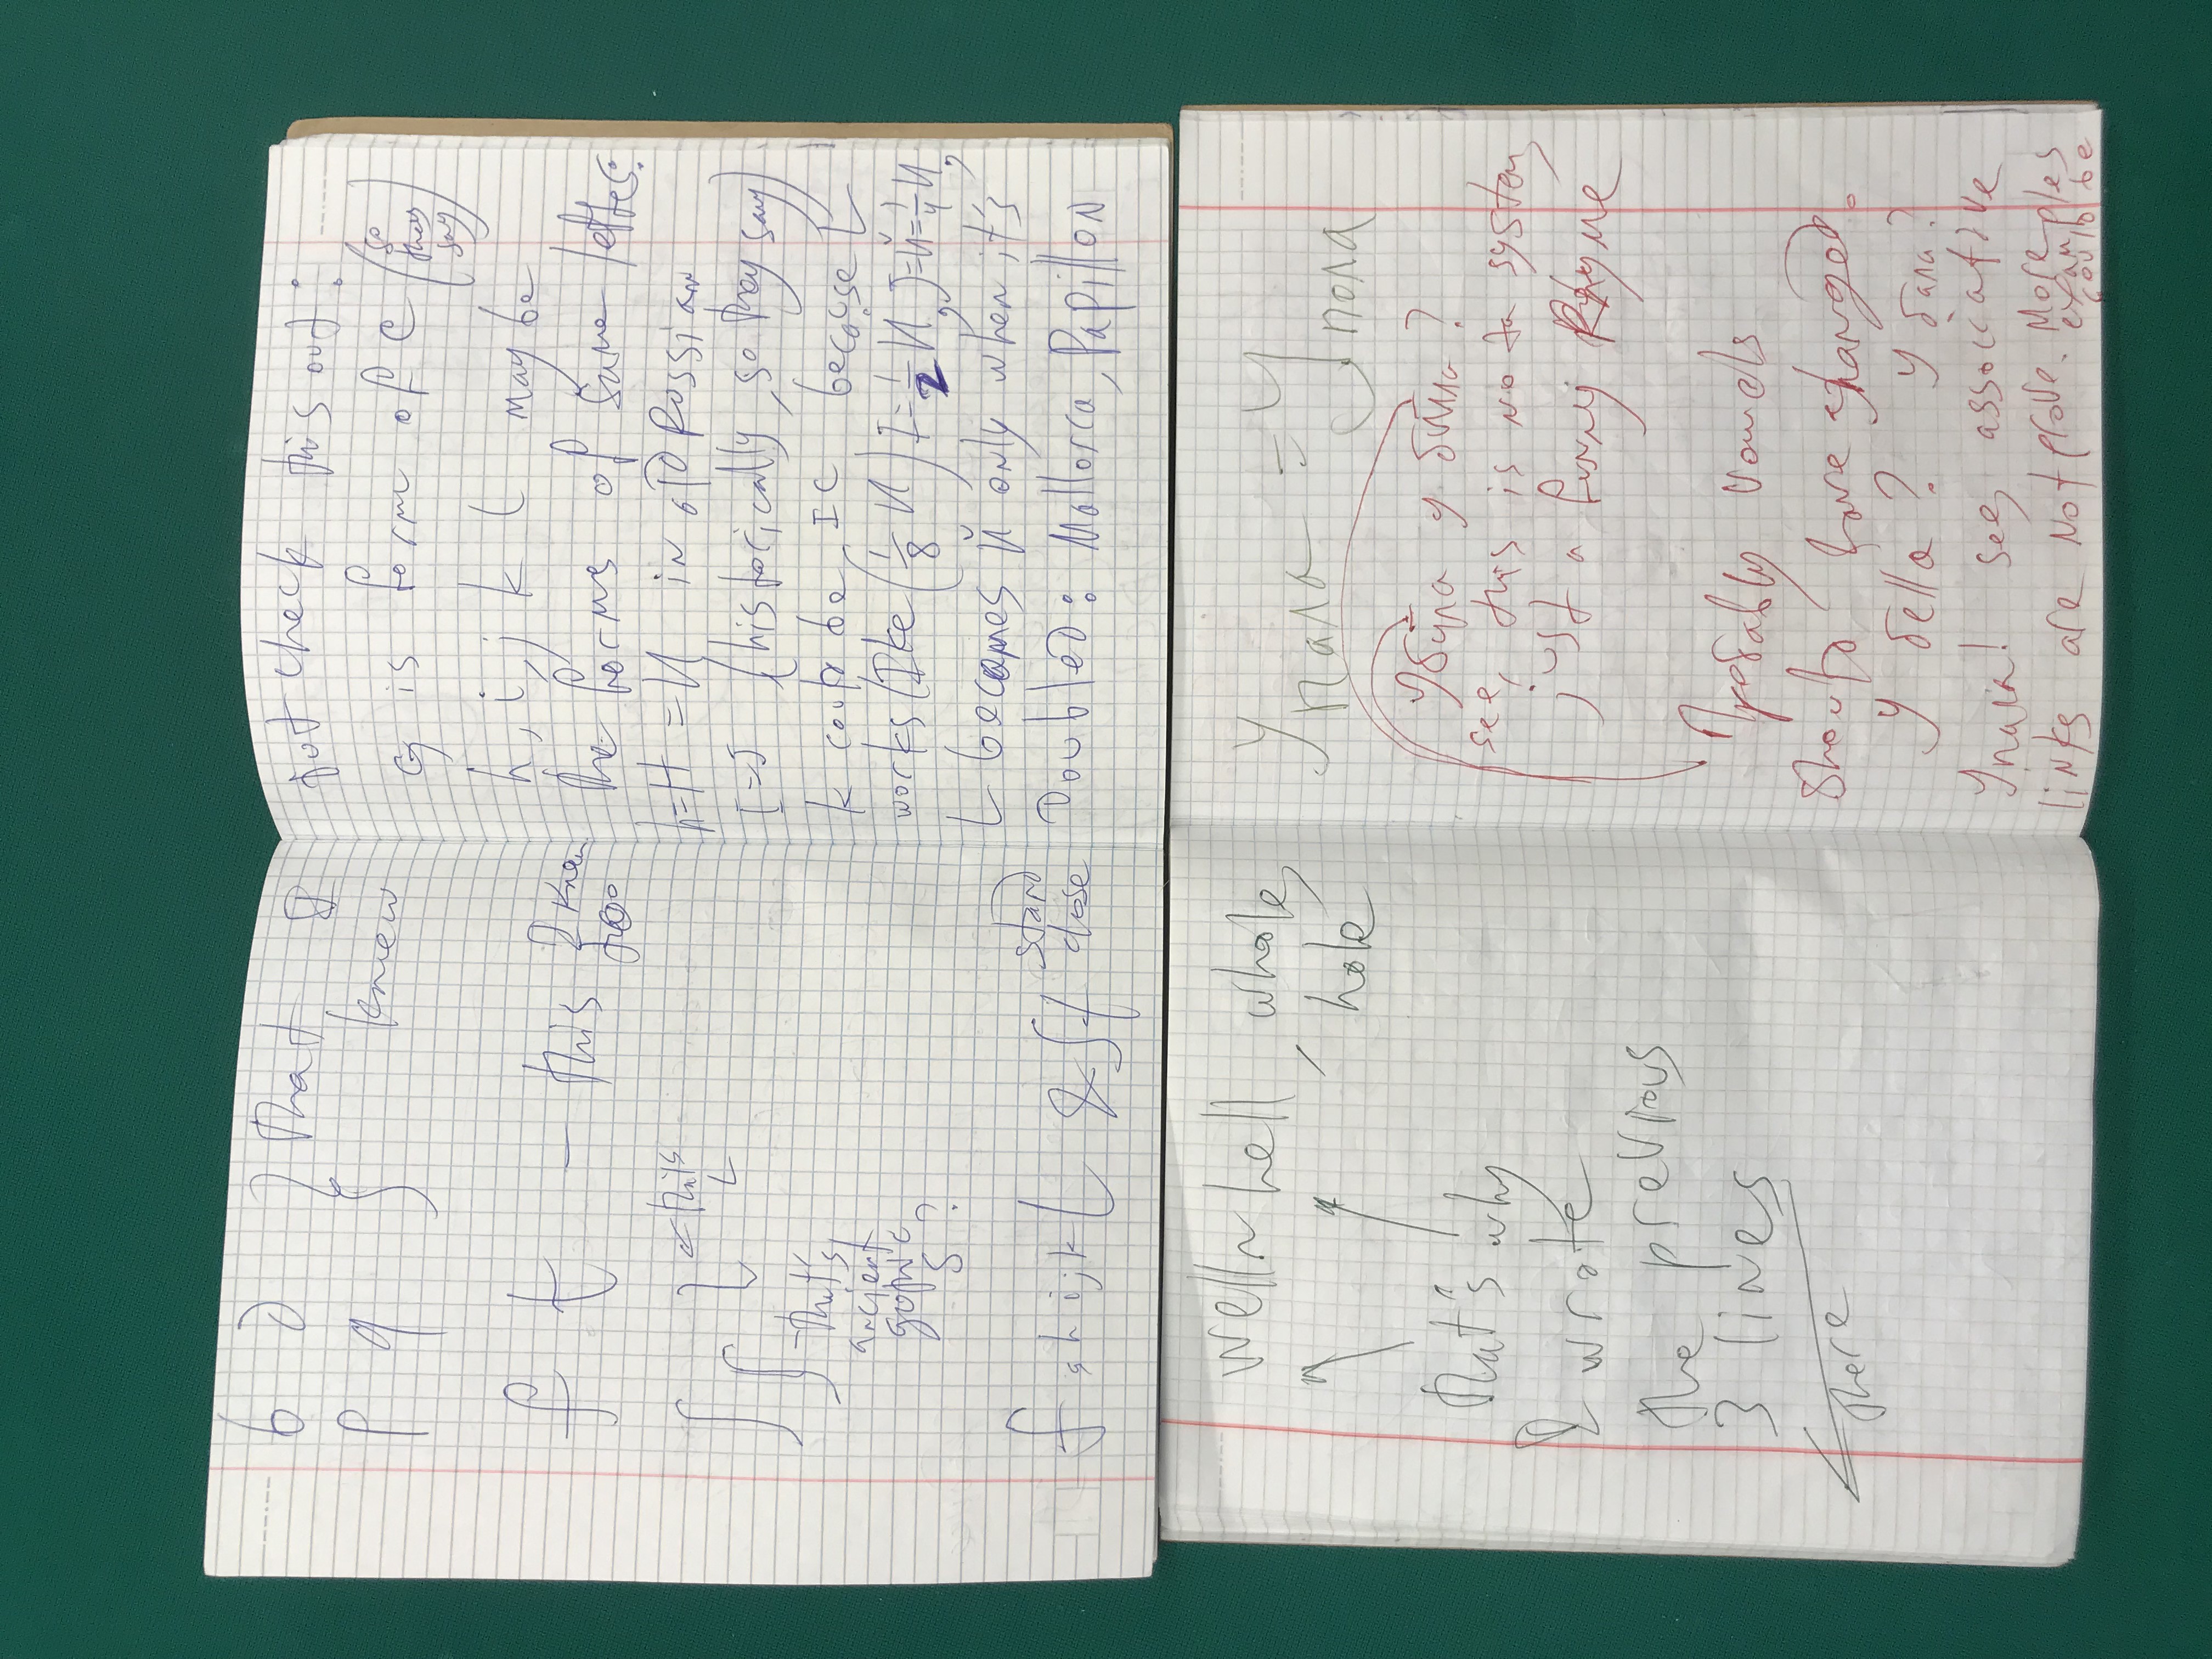 b d } that I
p q } knew
f t – this I knew
too
ʃ ʅ ← this
L
ʃ – that's
ancient
gothic
S ?
f g h i j k L & ʃ t stand
close
but check this out:
G is form of C (so they say)
h, i, j k l may be
the forms of same letter:
h=H = И in olD Russian
I=J (historically, so they say)
k coulD be IC because L
works like (1/8 И) I=1/2 И, J=й=1/4 И,
L becomes й only when it's
DoubleD: Mallorca, Papillon
well~hell, whole,
hole
that's why
I wrote
the previous
3 lines
← there
Упала = У пола
Убила у била?
see, this is not a system,
just a funny Rhyme
Probably vowels
shoulD have changeD.
У белла? У бала?
Упала! see, associative
links are not prove. More
examples
coulD be